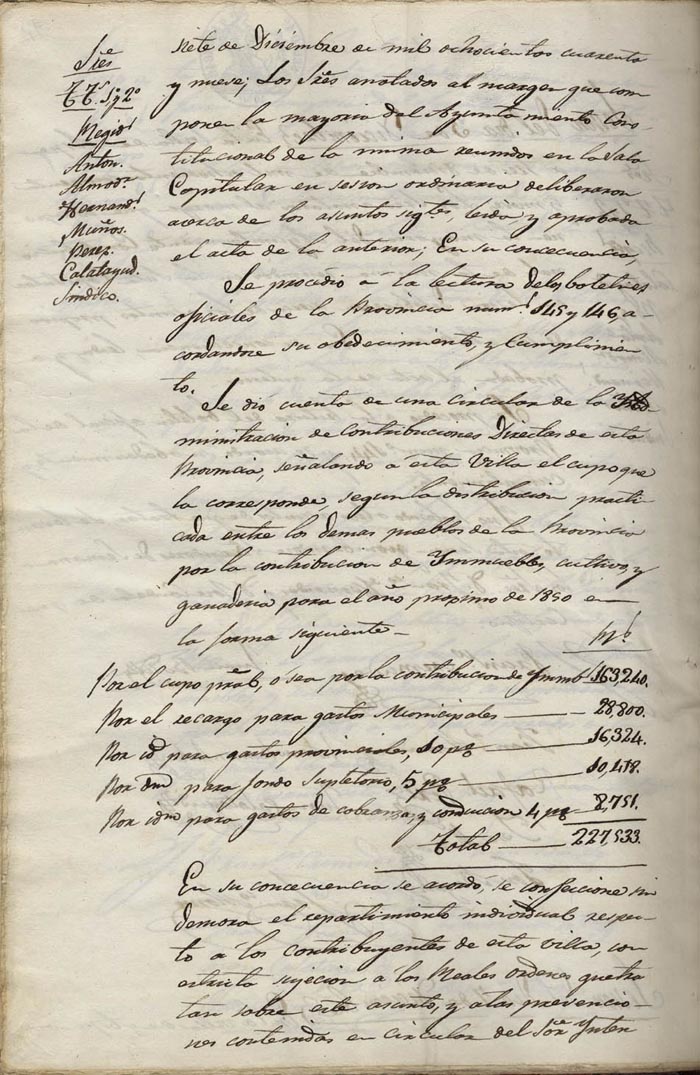 Sres
TTs. 1º y 2º
Regid.s
Anton.
Almod.r
Hernand.s
Muños.
Perez.
Calatayud.
Sindico.
siete de Diciembre de mil ochocientos cuarenta
y nueve; Los Sres anotados al margen que com
ponen la mayoria del Ayuntamiento Cons-
titucional de la misma reunidos en la Sala
Capitular en sesion ordinaria deliberaron
acerca de los asuntos sigtes, leida y aprobada
el acta de la anterior; En su concecuencia,
Se procedio á la lectura delos boletines
oficiales de la Provincia num.s 145 y 146, a-
cordandose su obedecimiento, y cumplimien
to.
Se dió cuenta de una circular de la Ad-
ministracion de contribuciones Directas de esta
Provincia, señalando á esta Villa el cupo que
la corresponde, segun la distribucion practi
cada entre los demas pueblos de la Provincia
por la contribucion de Ynmuebles, cultivo, y
ganaderia para el año proximo de 1850 en
la forma siguiente-
Rs.
Por el cupo pral, ó sea por la contribucion de Ynmbs 163,240.
Por el recargo para gastos Municipales — 28,800.
Por id para gastos provinciales, 10 pg — 16,324.
Por idm para fondo supletorio, 5 pg — 10,418.
Por idm para gastos de cobranza, y conducion 4 pg — 8,751.
Total — 227,533.
En su concecuencia se acordó, se confeccione sin
demora el repartimiento individual respec-
to á los contribuyentes de esta villa, con
estricta sujecion a las Reales ordenes que tra
tan sobre este asunto, y alas prevencio-
nes contenidas en circular del Sor Ynten